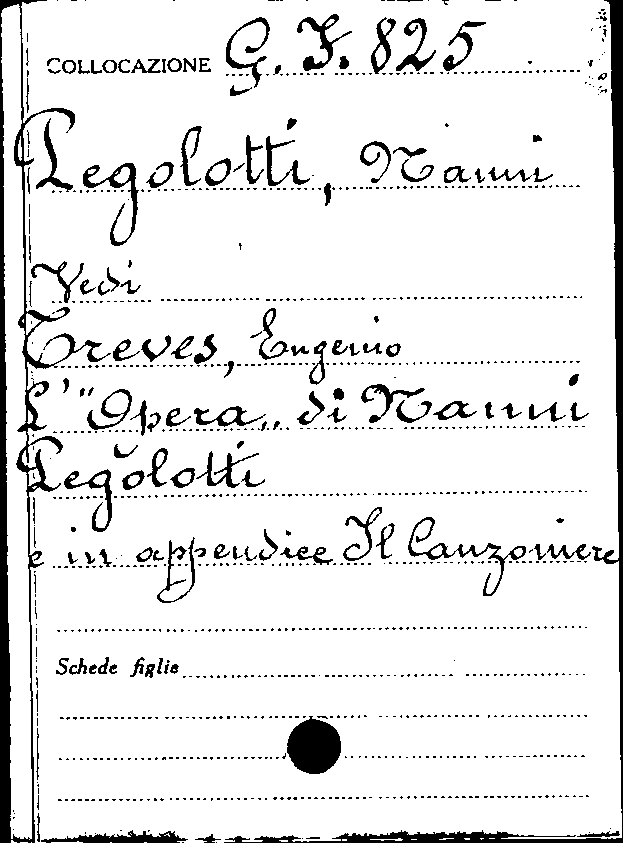 COLLOCAZIONE G. F. 825
Pegolotti, Nanni
Vedi
Treves, Eugenio
L'"Opera„ di Nanni
Pegolotti
e in appendice Il Canzoniere
Schede figlie